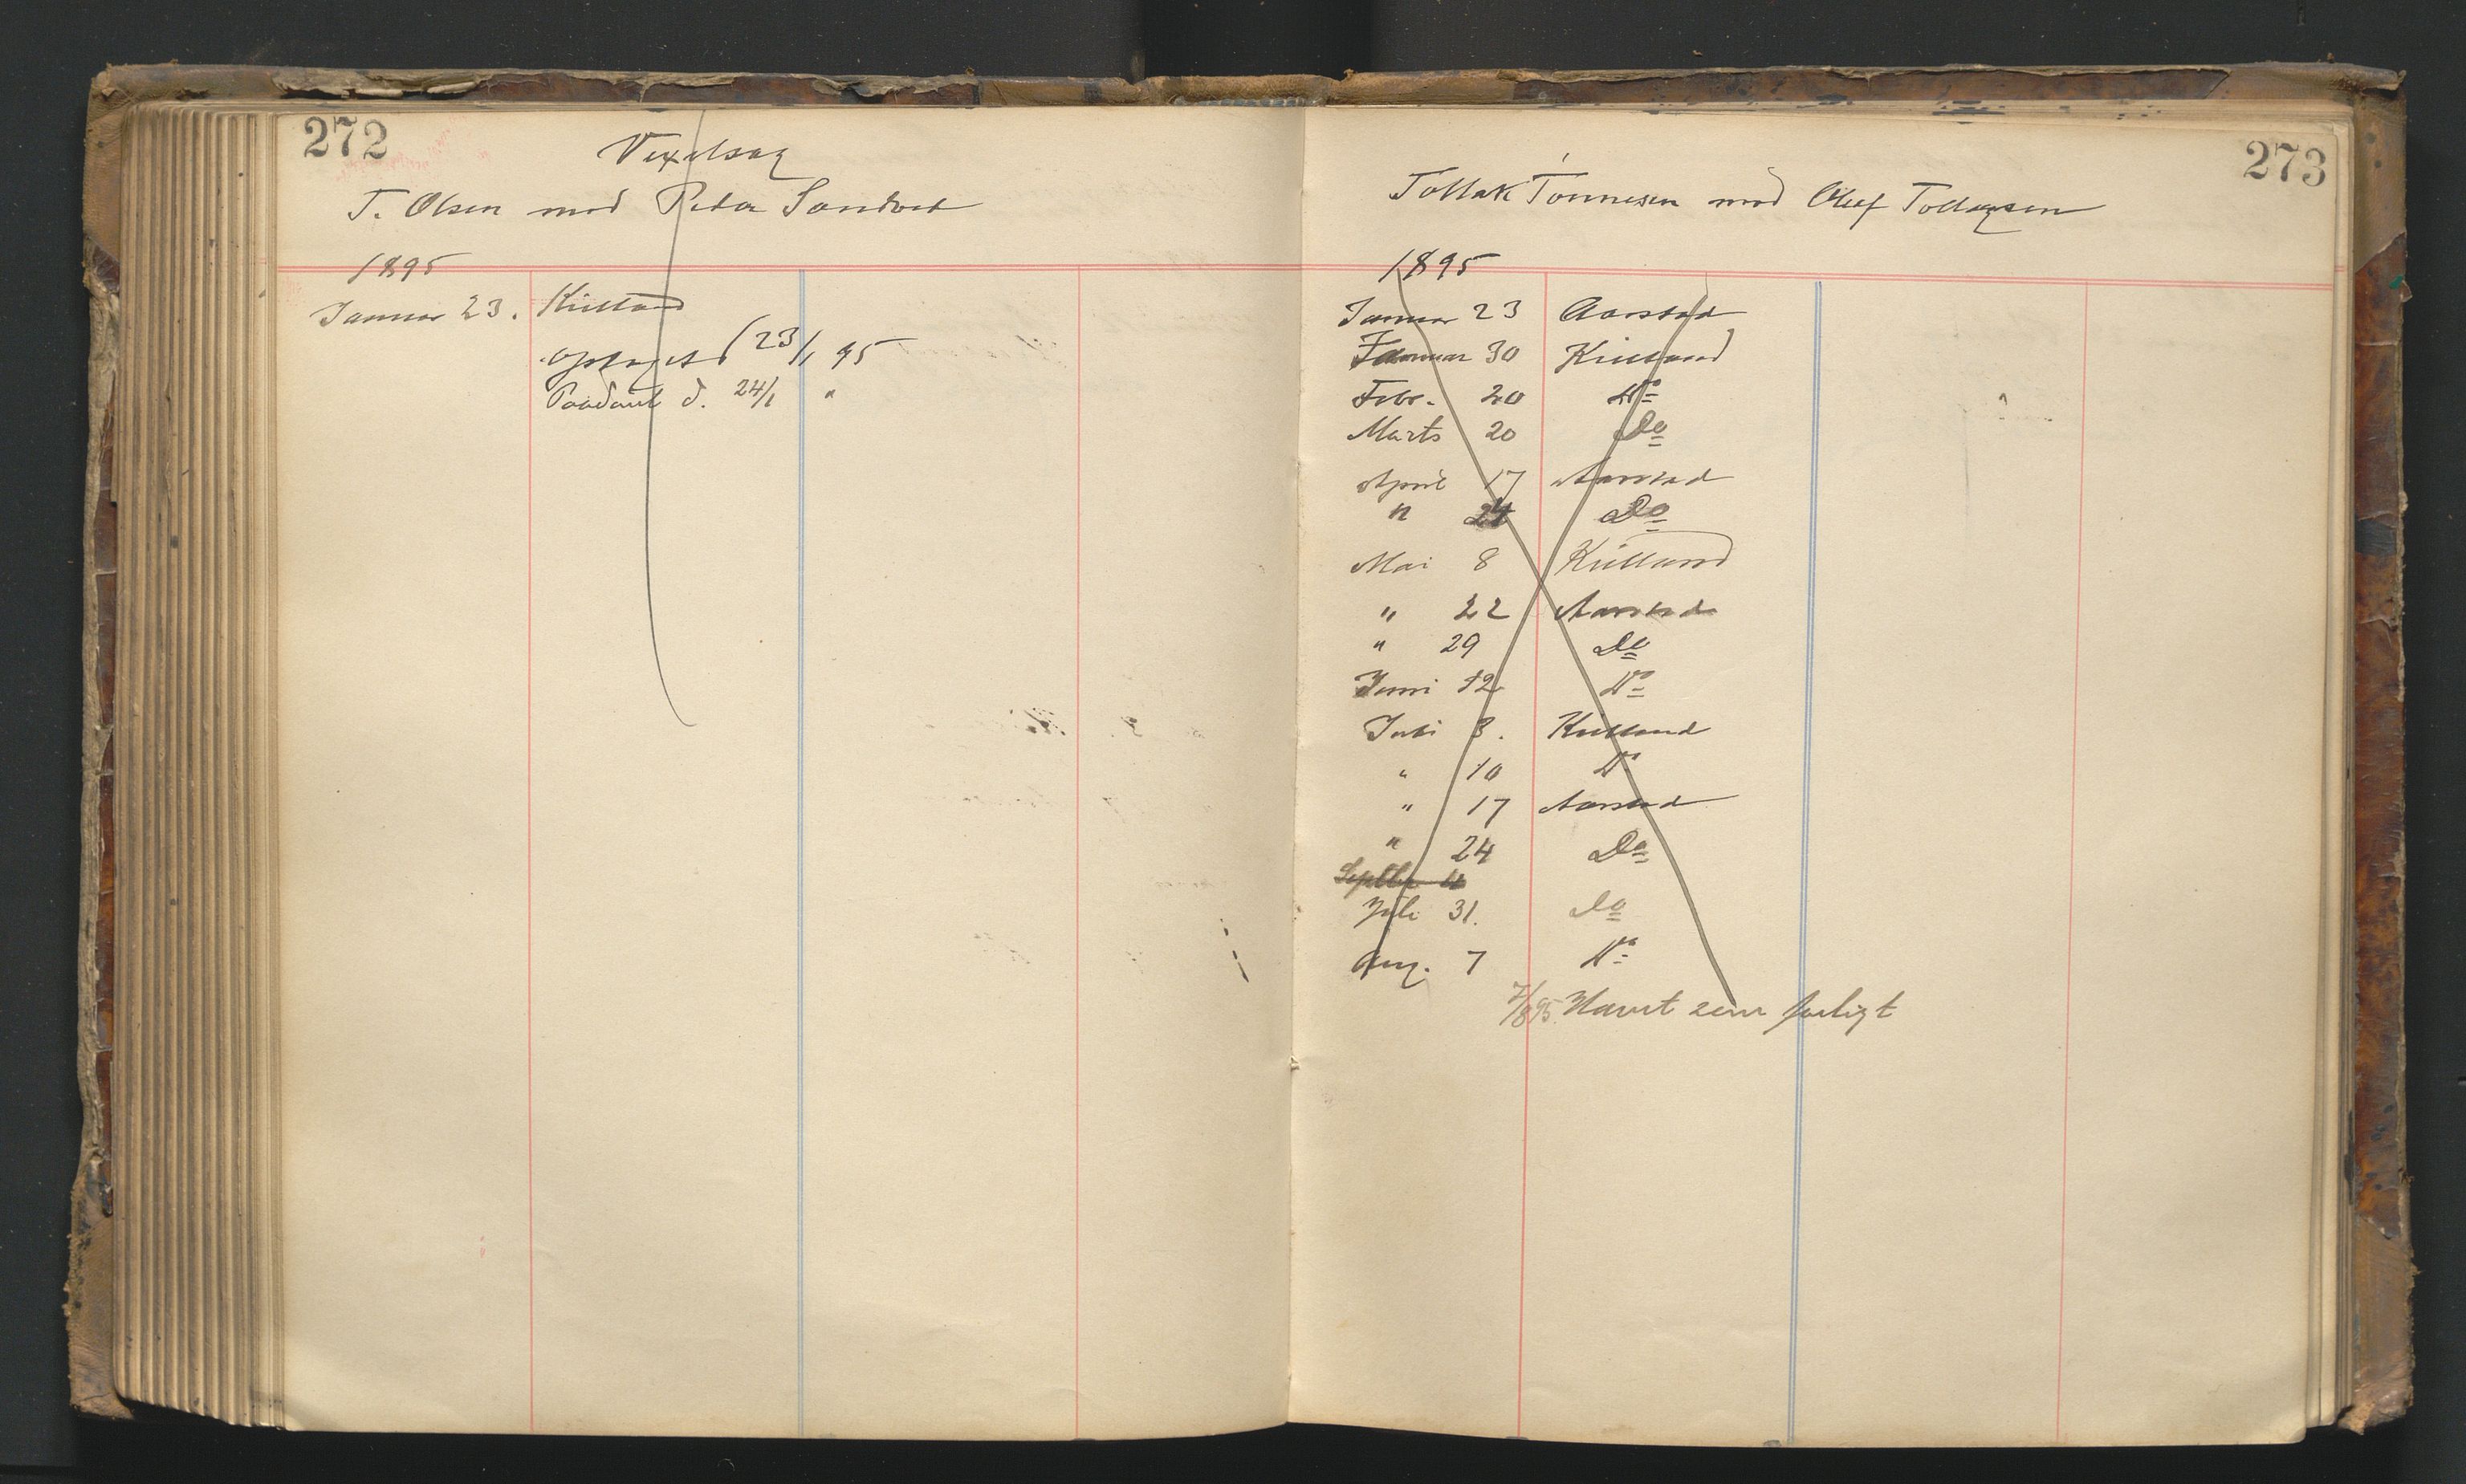 272
Vexelsag
T. Olsen mod Peder Sandved
1895
Januar 23. Kielland
Optaget 23/1 95
Paadømt d. 24/1 "
273
Tollak Tønnesen mod Oluf Tollagsen
1895
Januar 23 Aarstad
Januar 30 Kielland
Febr. 20 Do
Marts 20 Do
April 17 Aarstad
" 24 Do
Mai 8 Kielland
" 22 Aarstad
" 29 Do
Juni 12 Do
Juli 3. Kielland
" 10 Do
" 17 Aarstad
" 24 Do
Septbr 4
Juli 31. Do
Aug. 7 Do
7/8 95. Hævet som forligt